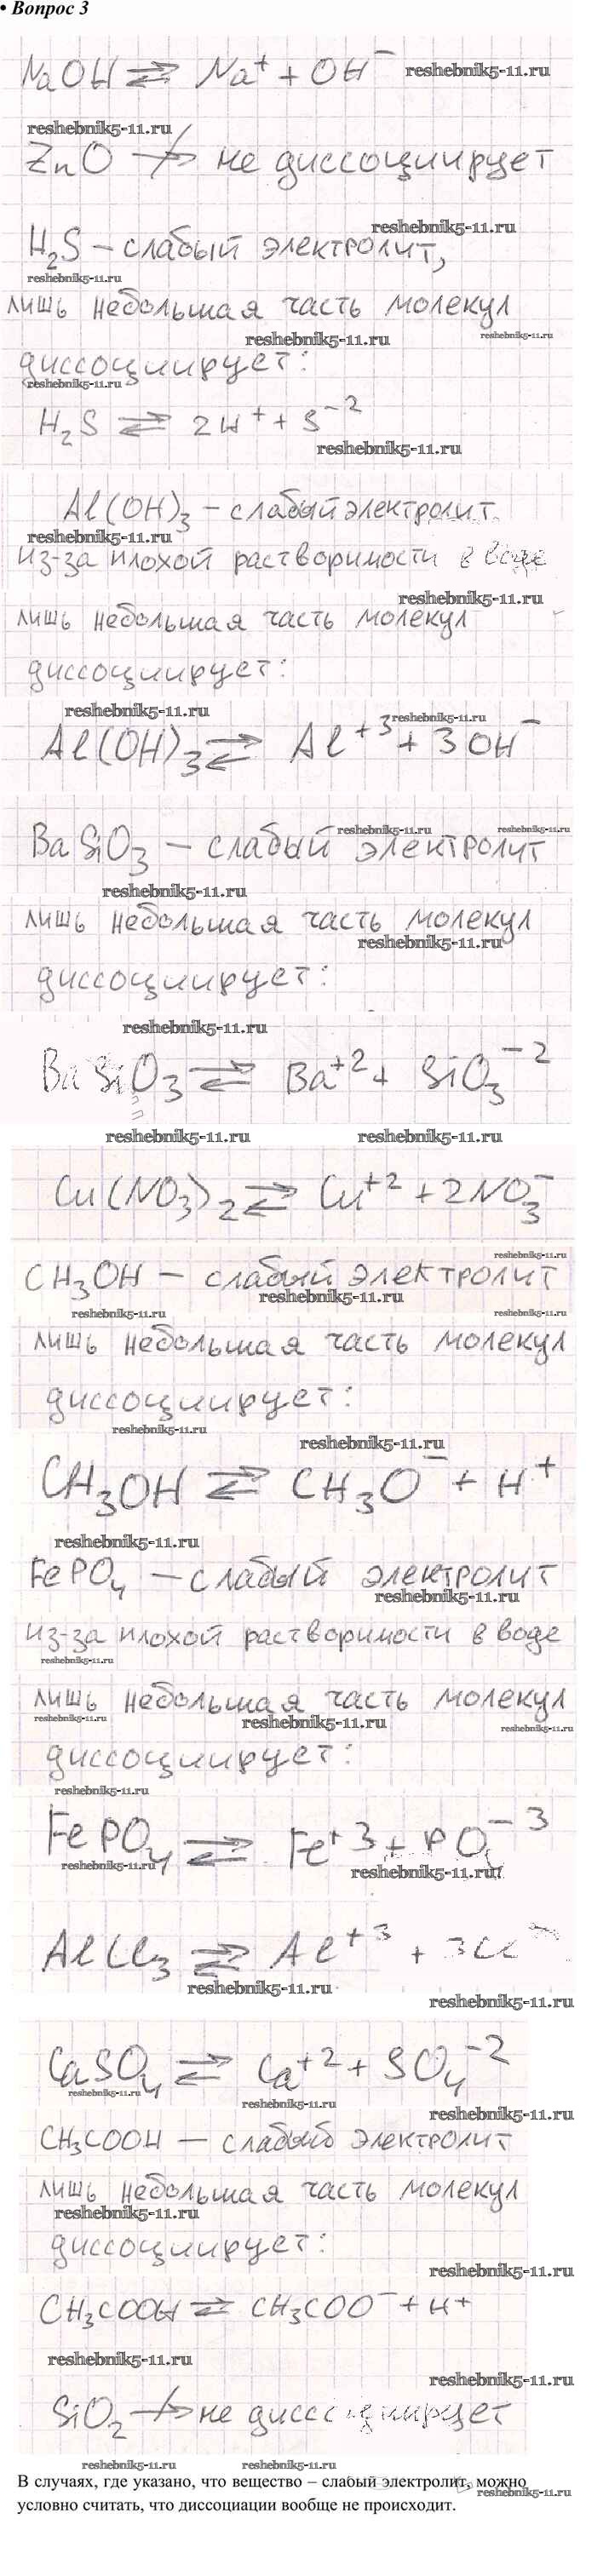 • Вопрос 3
NaOH ⇄ Na⁺ + OH⁻ reshebnik5-11.ru
reshebnik5-11.ru
ZnO ↛ не диссоциирует
reshebnik5-11.ru
H₂S – слабый электролит,
reshebnik5-11.ru
лишь небольшая часть молекул
reshebnik5-11.ru reshebnik5-11.ru
диссоциирует:
reshebnik5-11.ru
H₂S ⇄ 2H⁺ + S⁻²
reshebnik5-11.ru
Al(OH)₃ – слабый электролит
reshebnik5-11.ru
из-за плохой растворимости в воде
reshebnik5-11.ru
лишь небольшая часть молекул
диссоциирует:
reshebnik5-11.ru reshebnik5-11.ru
Al(OH)₃ ⇄ Al⁺³ + 3OH⁻
reshebnik5-11.ru reshebnik5-11.ru
BaSiO₃ – слабый электролит
reshebnik5-11.ru
лишь небольшая часть молекул
reshebnik5-11.ru
диссоциирует:
reshebnik5-11.ru
BaSiO₃ ⇄ Ba⁺² + SiO₃⁻²
reshebnik5-11.ru reshebnik5-11.ru
Cu(NO₃)₂ ⇄ Cu⁺² + 2NO₃⁻
reshebnik5-11.ru
CH₃OH – слабый электролит
reshebnik5-11.ru
reshebnik5-11.ru reshebnik5-11.ru
лишь небольшая часть молекул
диссоциирует:
reshebnik5-11.ru
reshebnik5-11.ru
CH₃OH ⇄ CH₃O⁻ + H⁺
reshebnik5-11.ru
FePO₄ – слабый электролит
reshebnik5-11.ru
из-за плохой растворимости в воде
reshebnik5-11.ru
лишь небольшая часть молекул
reshebnik5-11.ru reshebnik5-11.ru reshebnik5-11.ru
диссоциирует:
reshebnik5-11.ru
FePO₄ ⇄ Fe⁺³ + PO₄⁻³
reshebnik5-11.ru reshebnik5-11.ru
AlCl₃ ⇄ Al⁺³ + 3Cl⁻
reshebnik5-11.ru
reshebnik5-11.ru
CaSO₄ ⇄ Ca⁺² + SO₄⁻²
reshebnik5-11.ru reshebnik5-11.ru
reshebnik5-11.ru
CH₃COOH – слабый электролит
лишь небольшая часть молекул
reshebnik5-11.ru
диссоциирует:
reshebnik5-11.ru
CH₃COOH ⇄ CH₃COO⁻ + H⁺
reshebnik5-11.ru
reshebnik5-11.ru
SiO₂ ↛ не диссоциирует
reshebnik5-11.ru reshebnik5-11.ru
В случаях, где указано, что вещество – слабый электролит, можно
reshebnik5-11.ru
условно считать, что диссоциации вообще не происходит.